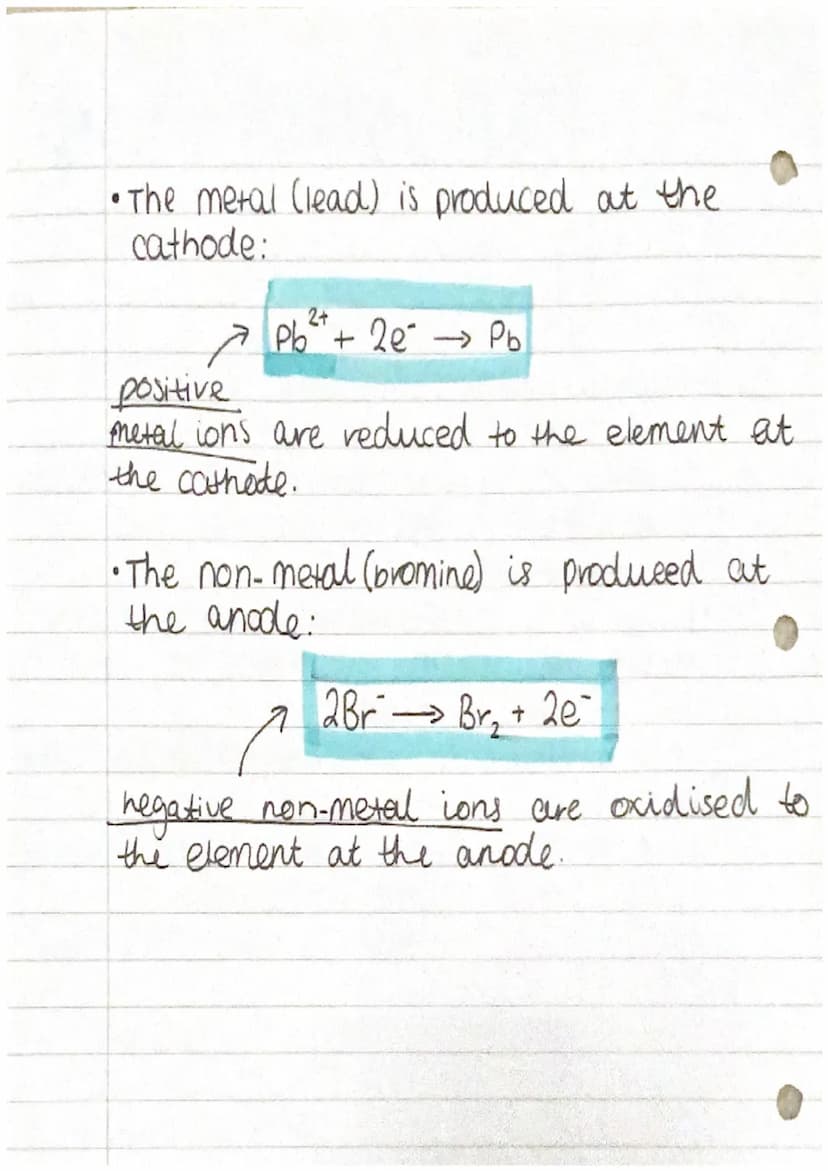 • The metal (lead) is produced at the
cathode:
Pb²⁺ + 2e⁻ → Pb
positive
metal ions are reduced to the element at
the cathode.
• The non-metal (bromine) is produced at
the anode:
2Br⁻ → Br₂ + 2e⁻
negative non-metal ions are oxidised to
the element at the anode.